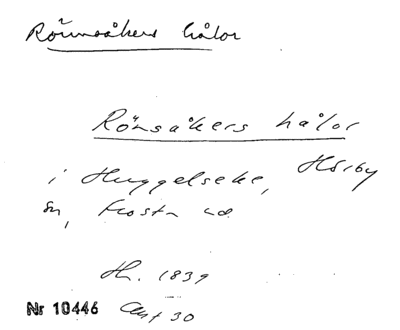 Rönnsåkers hålor
Rönsåkers hålor
i Huggelseke, Hörby
sn, Frosta hd
Hh. 1839
Nr 10446 Ant 30